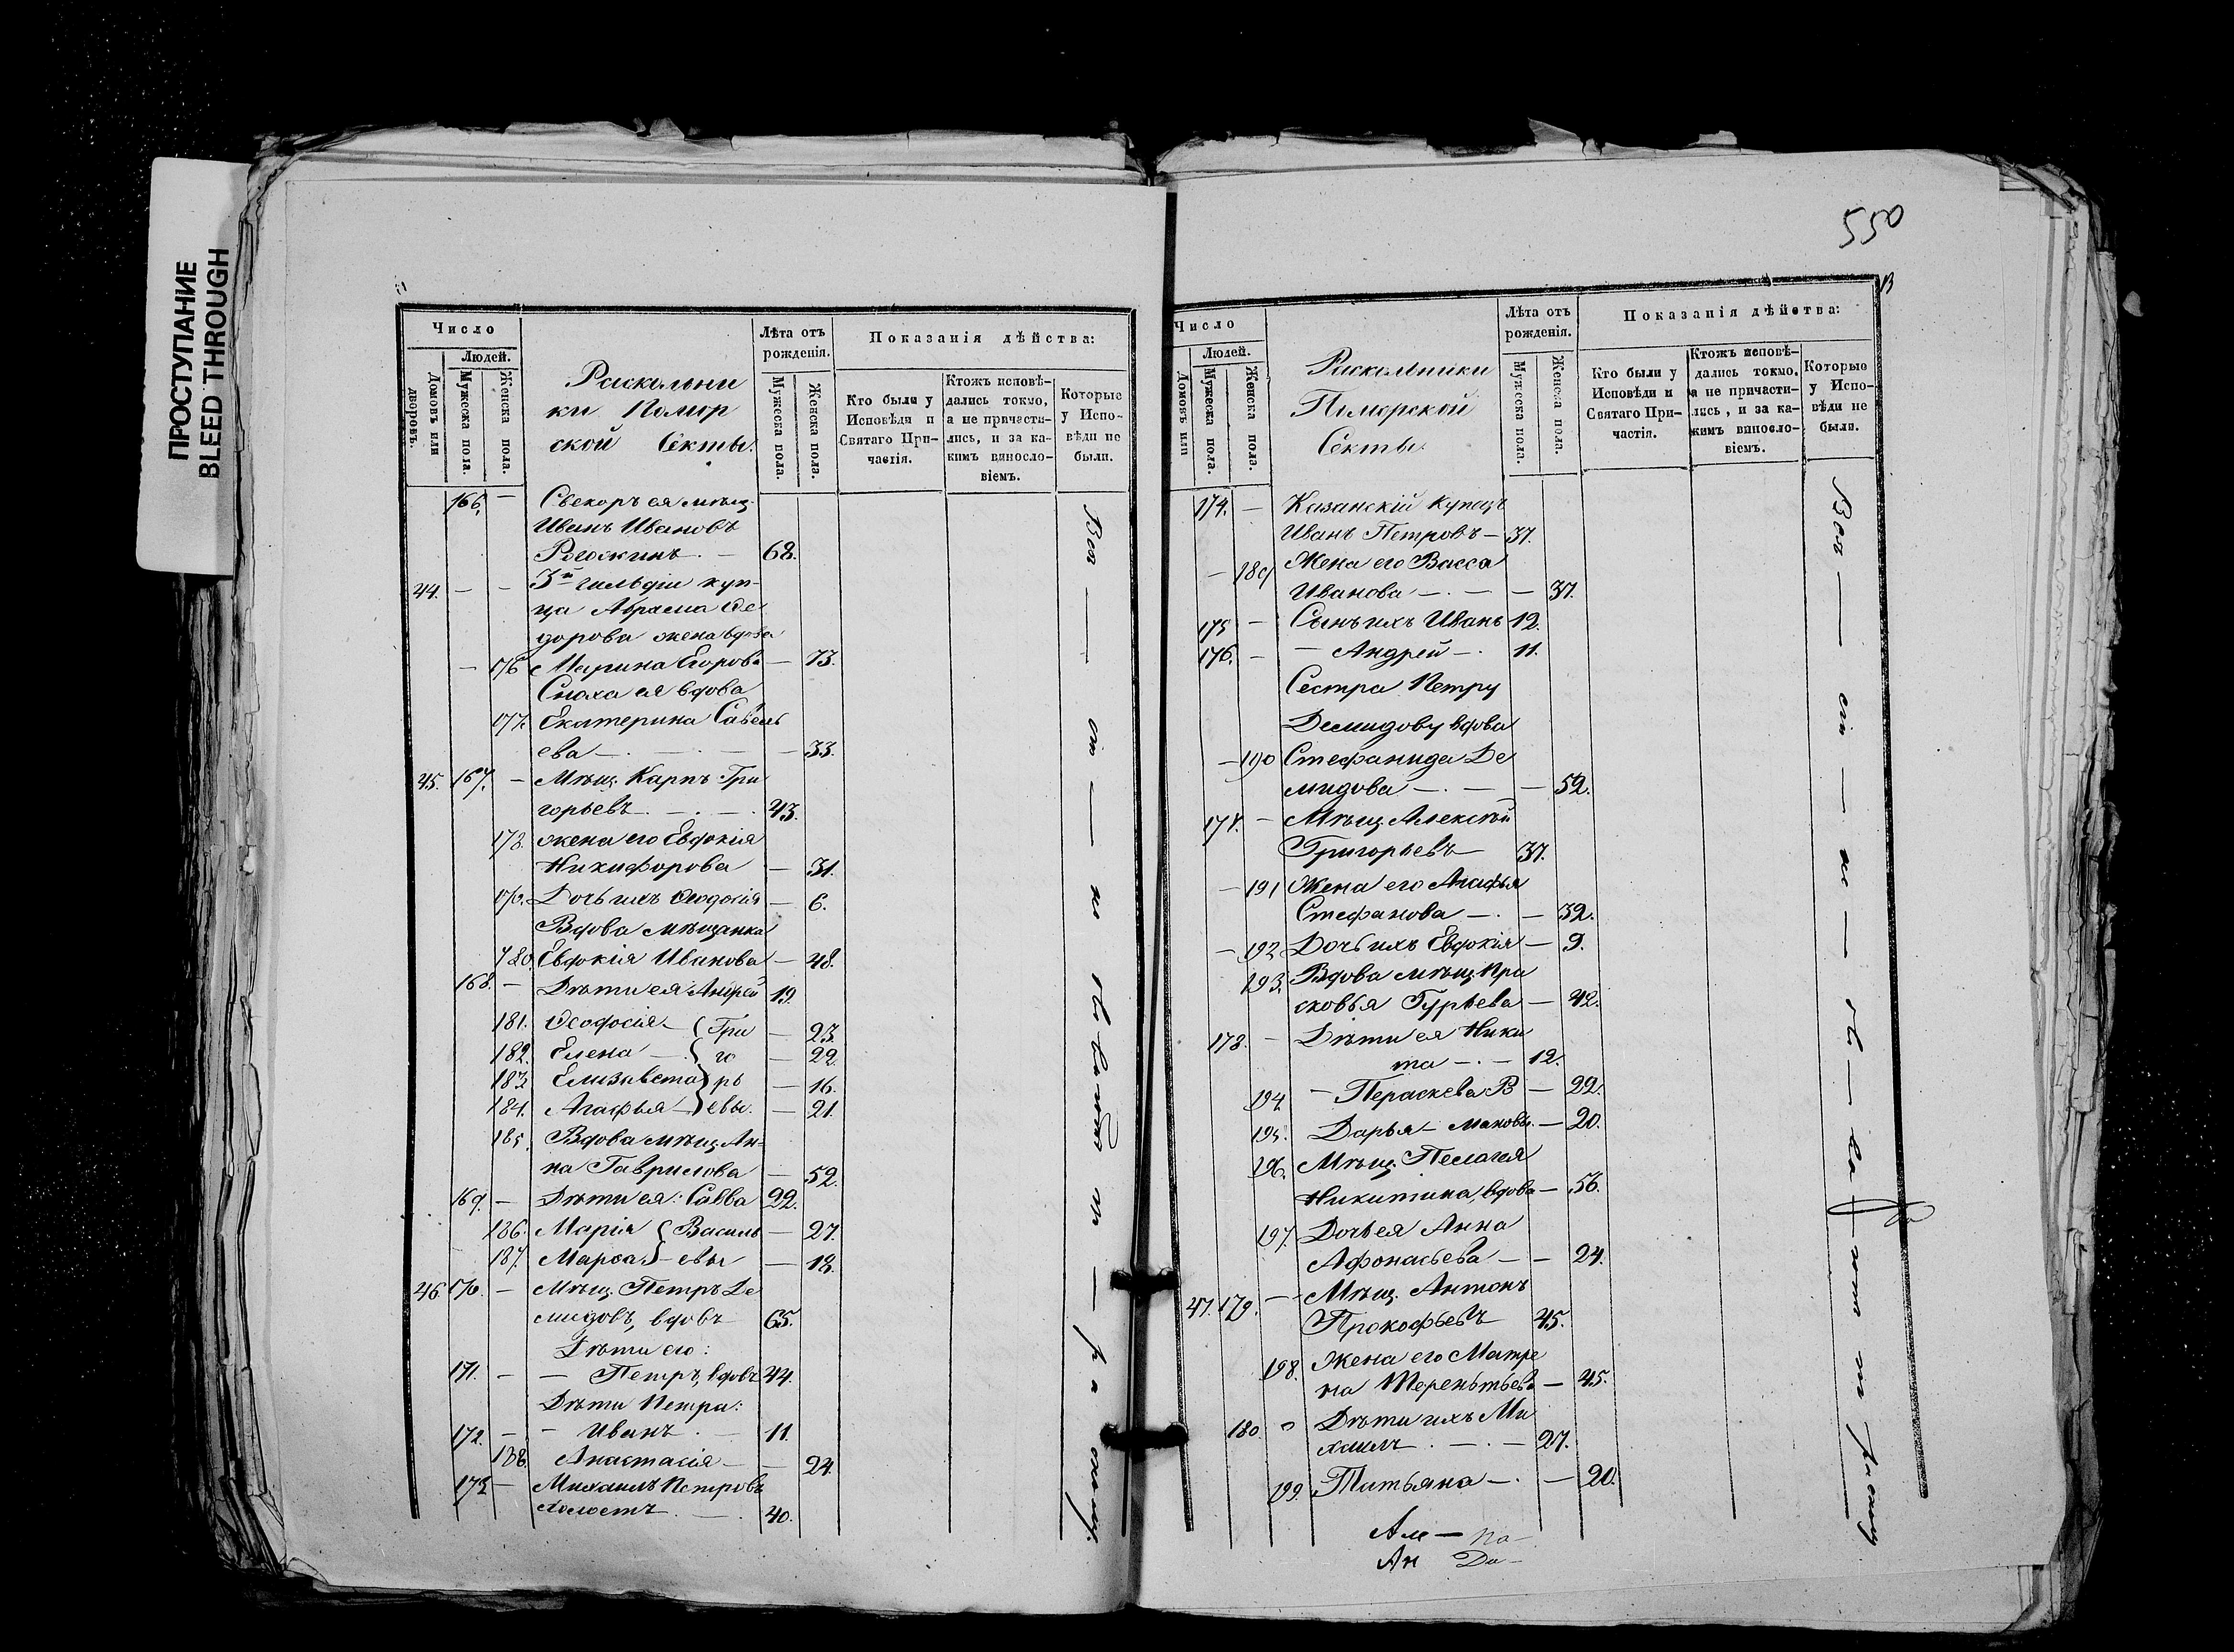 ПРОСТУПАНИЕ
BLEED THROUGH
Число
Людей.
Домовъ или дворовъ.
Мужеска пола.
Женска пола.
Раскольни
ки Помор
ской Секты.
Лѣта отъ рожденія.
Мужеска пола.
Женска пола.
Показанія дѣйства:
Кто были у Исповѣди и Святаго При-частія.
Ктожъ исповѣ-дались токмо, а не причасти-лись, и за ка-кимъ винослo-віемъ.
Которые у Испо-вѣди не были.
166. — Свекоръ ея мѣщ.
Иванъ Ивановъ
Рогожкинъ — 68.
44. — — 3й гильдіи куп-
ца Абрама Ѳе
дорова жена вдова
— 176 Марина Егорова — 73.
Сноха ея вдова
177. Екатерина Савель
ева — — 33.
45. 167. — Мѣщ. Карпъ Гри
горьевъ — 43.
178. жена его Евдокія
Никифорова — 31.
179. Дочь ихъ Ѳеодосія — 6.
Вдова мѣщанка
180. Евдокія Иванова — 48.
168. — Дѣти ея Андрей 19.
181. Ѳеодосія — Гри — 23.
182. Елена — го — 22.
183 Елизавета рь — 16.
184. Агафья — евы. — 21.
185. Вдова мѣщ. Ан-
на Гаврилова — 52.
169. — Дѣти ея: Савва 22.
186. Марія Василь — 27.
187. Марѳа — евы — 18.
46. 170. — Мѣщ. Петръ Де
мидовъ, вдовъ 65.
Дѣти его:
171. — — Петръ, вдовъ 44.
Дѣти Петра:
172. — — Иванъ — 11.
188. Анастасія — — 24.
173 — Михаилъ Петровъ
холостъ — 40.
550
Число
Людей.
Домовъ или
Мужеска пола.
Женска пола.
Раскольники
Поморской
Секты.
Лѣта отъ рожденія.
Мужеска пола.
Женска пола.
Показанія дѣйства:
Кто были у Исповѣди и Святаго При-частія.
Ктожъ исповѣ-дались токмо, а не причасти-лись, и за ка-кимъ винослo-віемъ.
Которые у Испо-вѣди не были.
174. — Казанскій купецъ
Иванъ Петровъ — 37.
— 189 Жена его Васса
Иванова — — — 37.
175 — Сынъ ихъ Иванъ 12.
176. — — Андрей — 11.
Сестра Петру
Демидову вдова
— 190 Стефанида Де
мидова — — — 52.
177. — Мѣщ. Алексѣй
Григорьевъ 37.
— 191 Жена его Агафья
Стефанова — — 32.
— 192 Дочь ихъ Евдокія — 9.
193. Вдова мѣщ. Пра
сковья Гурьева — 42.
178. — Дѣти ея Ники
та — — 12.
194 — Параскева В — 22.
195. Дарья — — 20.
196. Мѣщ. Пелагея
Никитина, вдова — 56.
197. Дочь ея Анна
Афонасьева — — 24.
47. 179. — Мѣщ. Антонъ
Прокофьевъ 45.
198. Жена его Матре
на Терентьева — 45.
180. Дѣти ихъ Ми
хаилъ — — 27.
199. Татьяна — — 20.